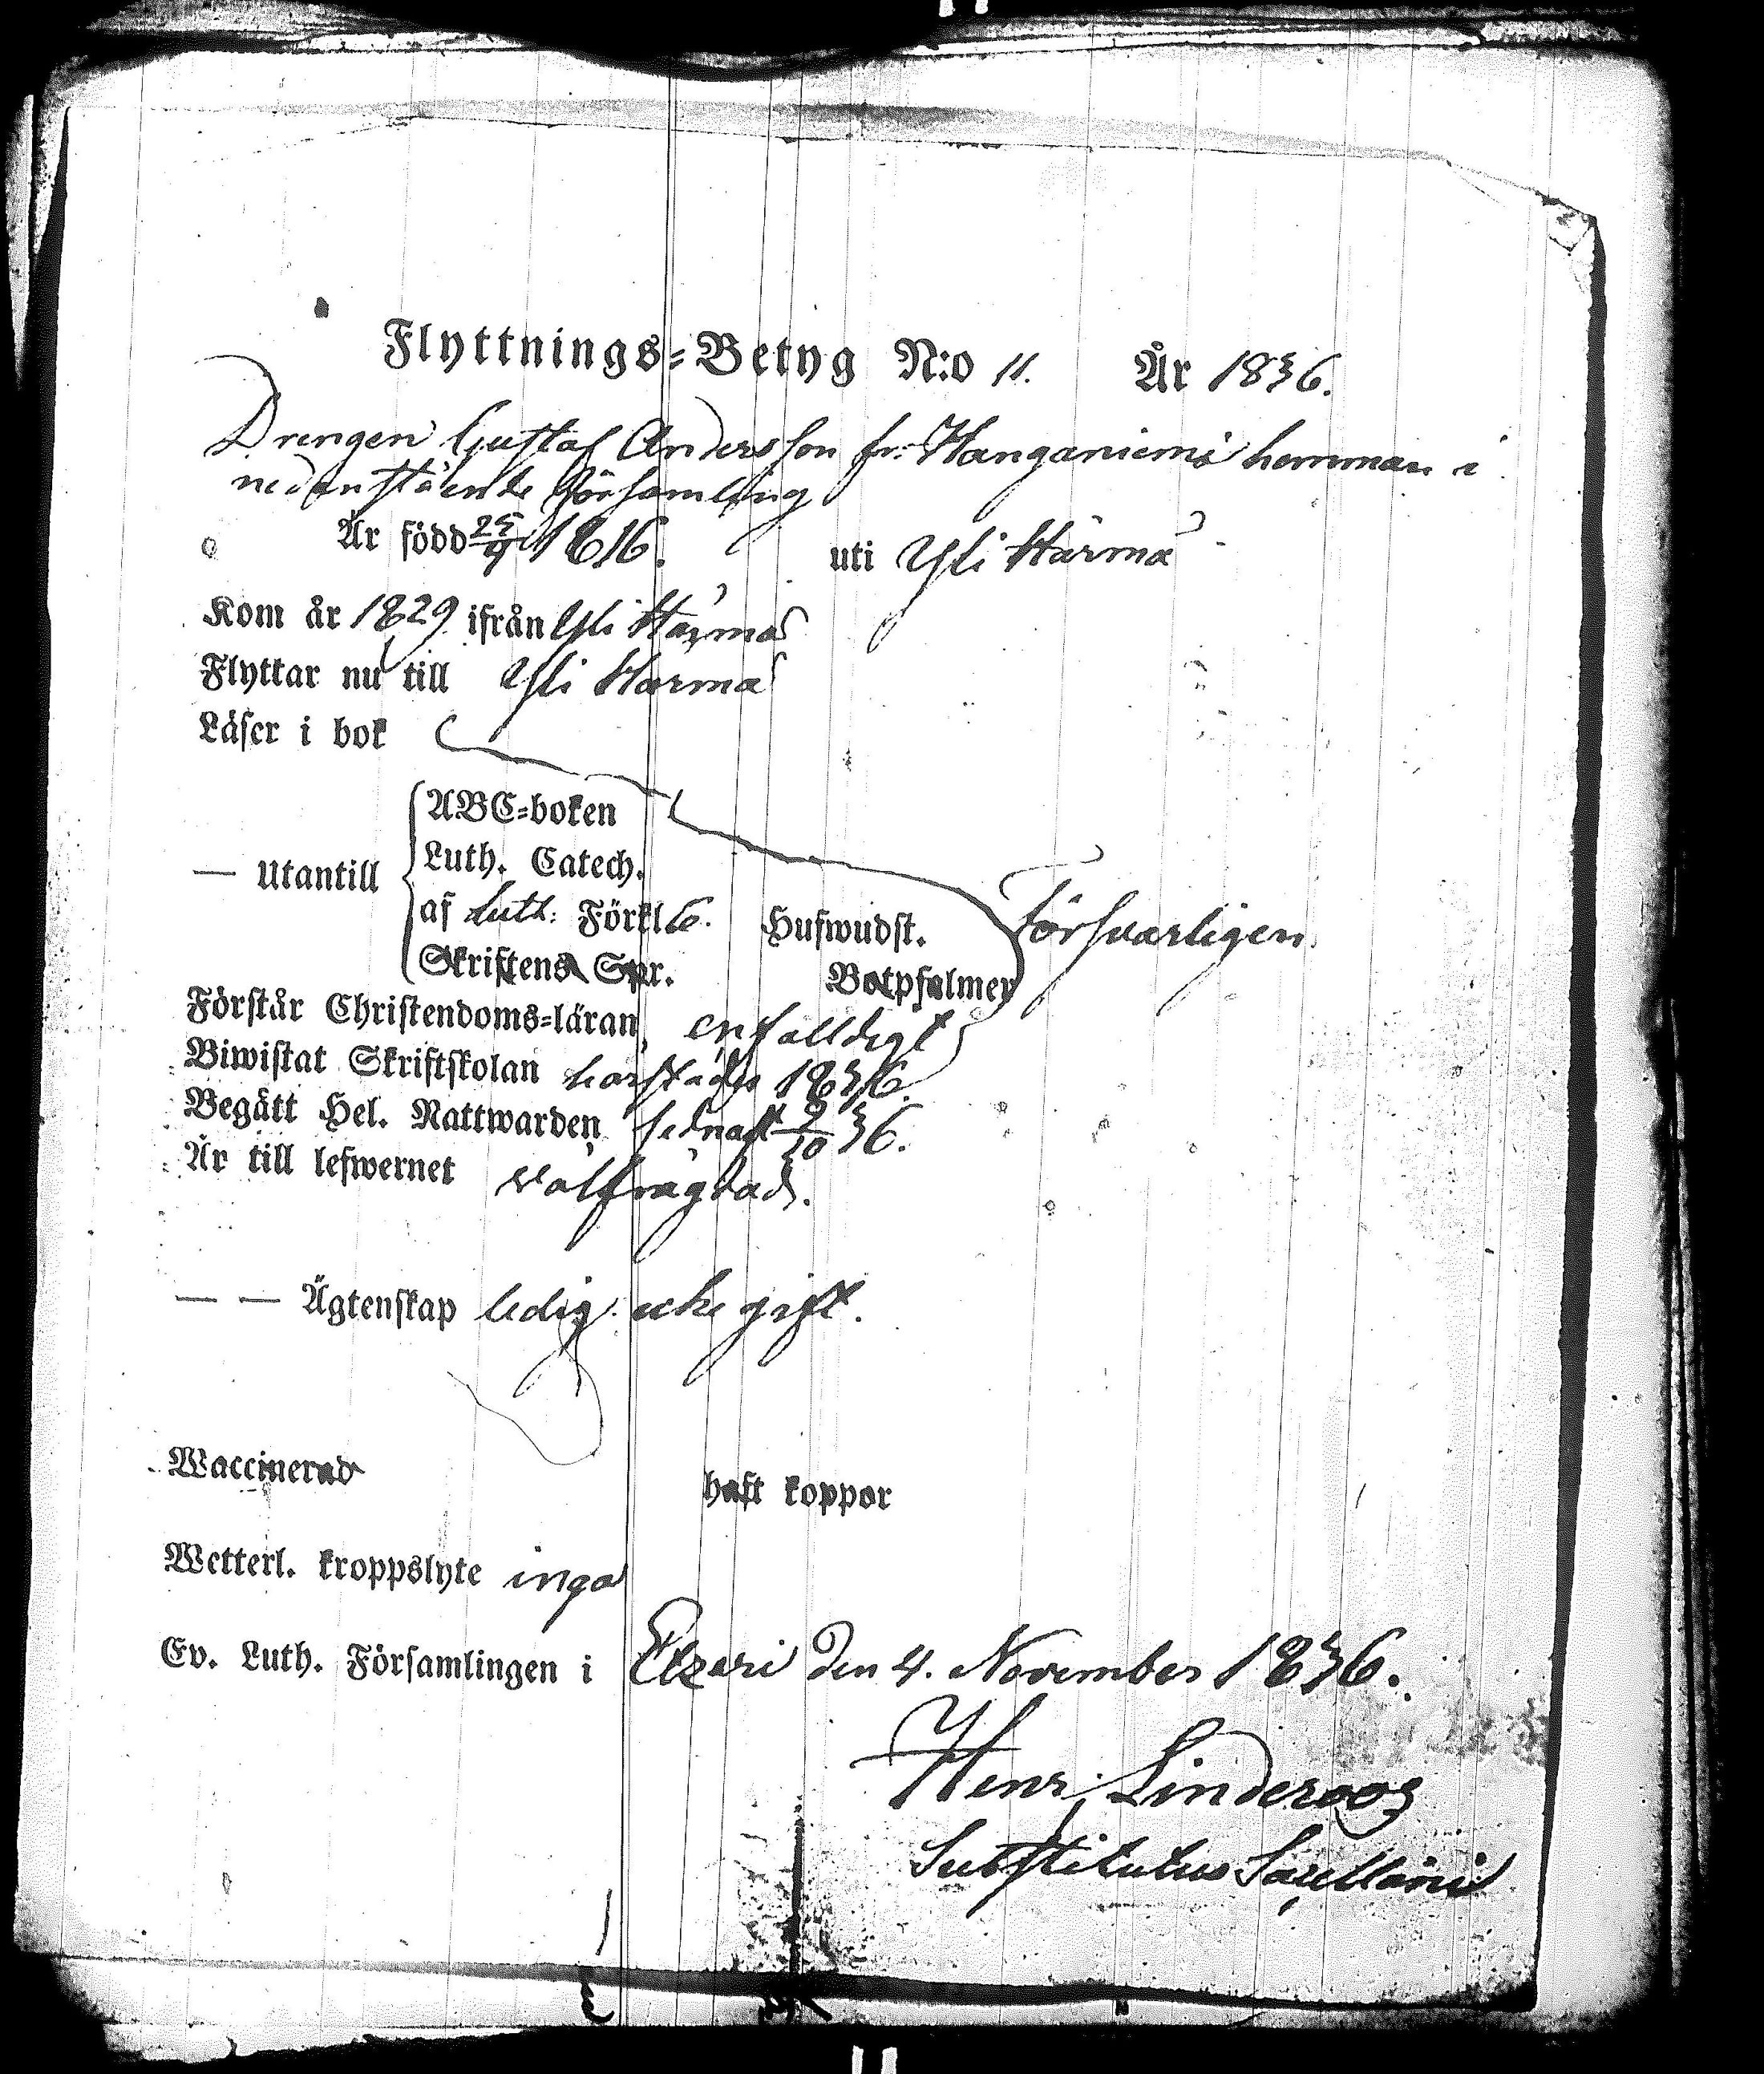 Flyttnings-Betyg N:o 11. År 1836.
Drengen Gustaf Andersson fr: Hanganiemi hemman i
nedanstående Församling
Är född 25/9 1816. uti Yli Härmä
Kom år 1829 ifrån Yli Härmä
Flyttar nu till Yli Härmä
Läser i bok
— Utantill
ABC-boken
Luth. Catech.
af Luth: Förkl 6. Hufwudst. Försvarligen
Skriftens Spr. Botpsalmer
Förstår Christendoms-läran enfalldigt
Biwistat Skriftskolan härstädes 1836.
Begått Hel. Nattwarden sednast 9/10 36.
Är till lefwernet välfrägdad.
— — Ägtenskap ledig: icke gift.
Waccinerad haft koppor
Wetterl. kroppslyte inga
Ev. Luth. Församlingen i Etseri den 4. November 1836.
Henr. Linderoos
Substitutus Sacellani